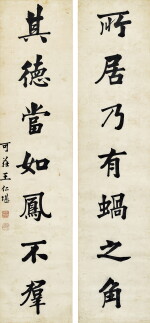 所居乃有蝸之角
其德當如鳳不羣
可莊王仁堪